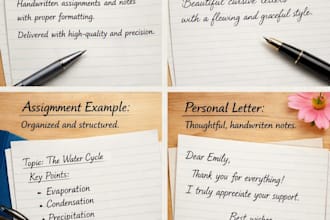 Handwritten assignments and notes
with proper formatting.
Delivered with high-quality and precision.
Beautiful cursive letters
with a flewing and graceful style.
Assignment Example:
Organized and structured.
Topic: The Water Cycle
Key Points:
• Evaporation
• Condensation
• Precipitation
Personal Letter:
Thoughtful, handwriten notes.
Dear Emily,
Thank you for everything!
I truly appreciate your support.
Best wishes